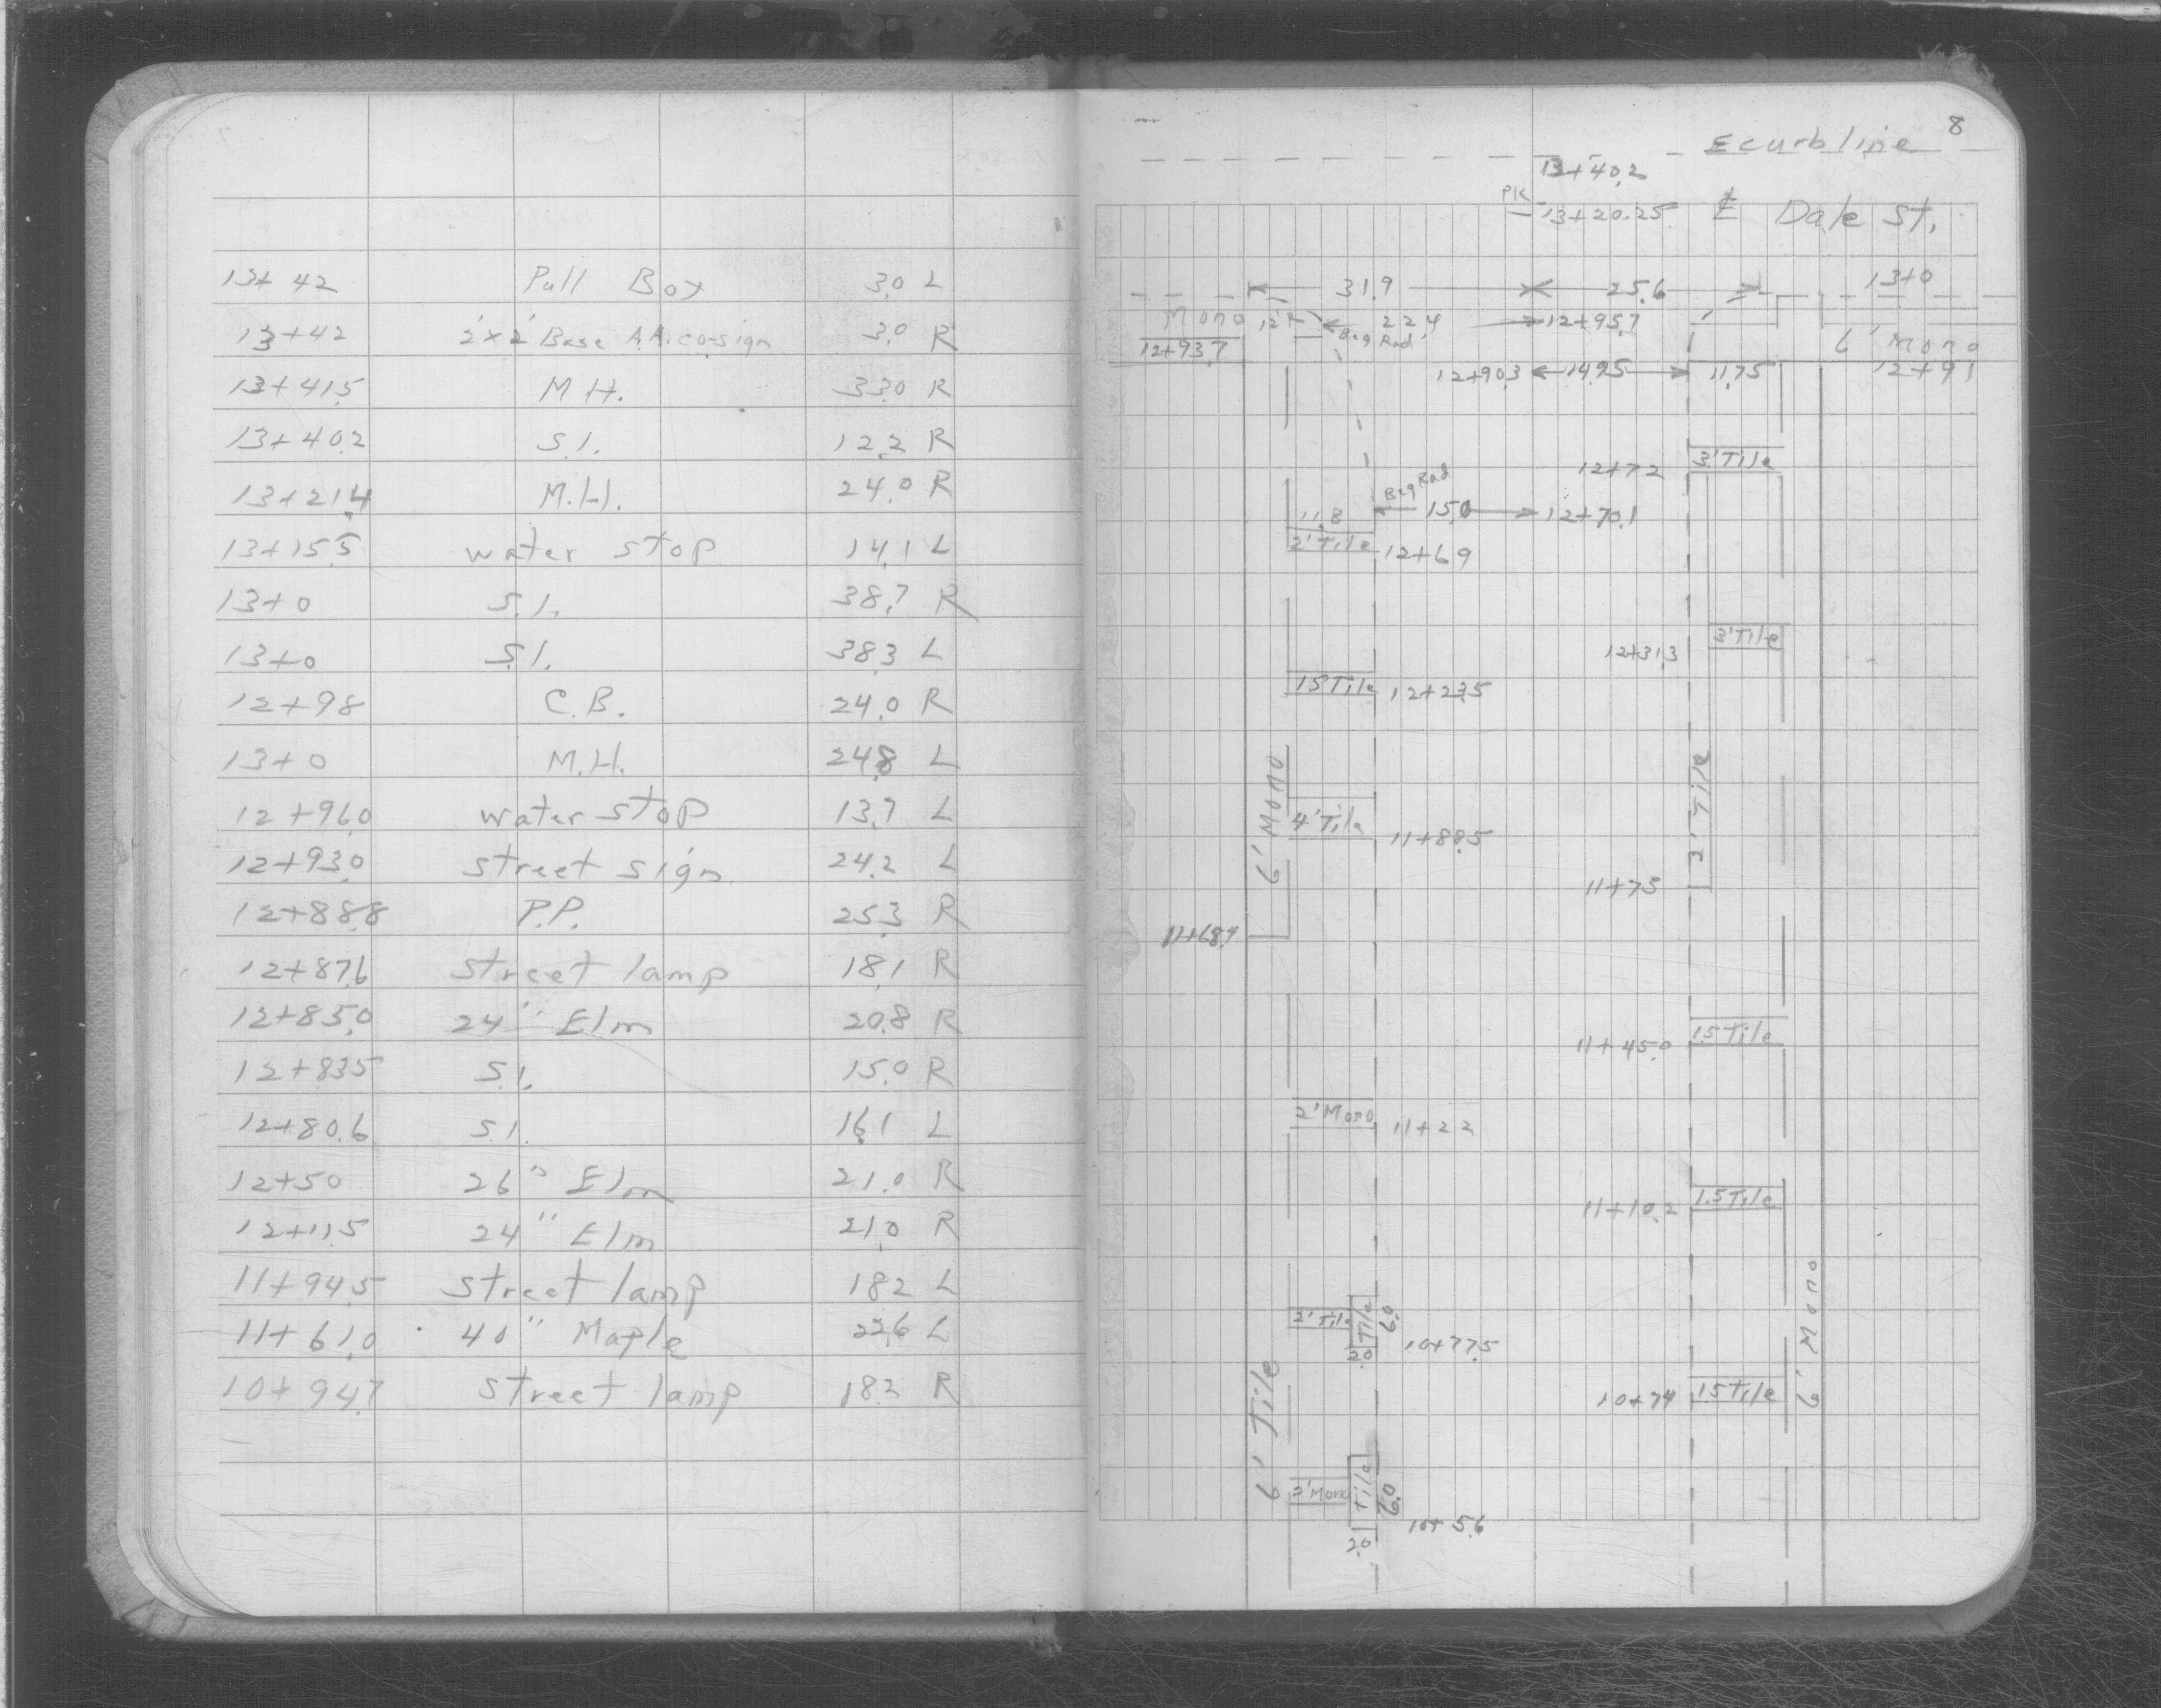 13+42 Pull Box 3.0 L
13+42 2'x2' Base A.A. co. sign 3.0 R
13+41.5 M.H. 33.0 R
13+40.2 S.I. 12.2 R
13+21.4 M.H. 24.0 R
13+15.5 water stop 14.1 L
13+0 S.I. 38.7 R
13+0 S.I. 38.3 L
12+98 C.B. 24.0 R
13+0 M.H. 24.8 L
12+96.0 water stop 13.7 L
12+93.0 street sign 24.2 L
12+88.8 P.P. 25.3 R
12+87.6 street lamp 18.1 R
12+85.0 24" Elm 20.8 R
12+83.5 S.I. 15.0 R
12+80.6 S.I. 16.1 L
12+50 26" Elm 21.0 R
12+11.5 24" Elm 21.0 R
11+94.5 street lamp 18.2 L
11+61.0 40" Maple 22.6 L
10+94.7 street lamp 18.2 R
8
E curb line
13+40.2
PK 13+20.25 ℄ Dale St.
31.9 25.6 13+0
Mono 12' R 22.4 12+95.7
Beg Rad. 6' Mono
12+93.7
12+90.3 14.95 11.75 12+91
12+72 3' Tile
Beg Rad
11.8 15.0 12+70.1
2' Tile 12+69
12+31.3 3' Tile
1.5 Tile 12+23.5
6' Mono
2' Tile
4' Tile 11+88.5
11+75
11+68.9
11+45.0 1.5 Tile
2' Mono 11+22
11+10.2 1.5 Tile
6' Mono
2' Tile Tile 6.0
2.0 10+77.5
10+74 1.5 Tile
6' Tile
2' Mono Tile 6.0
2.0 10+56